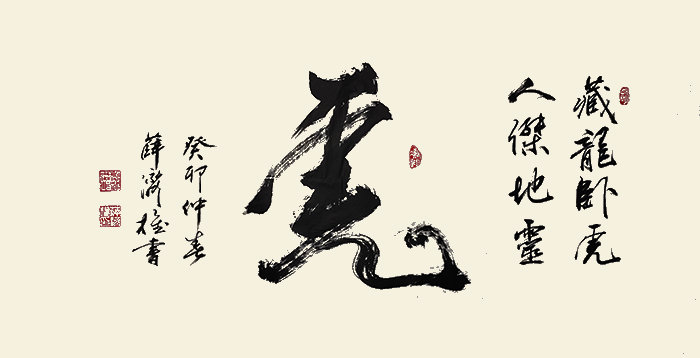 藏龍卧虎
人傑地靈
虎
癸卯仲春
薛濟
書